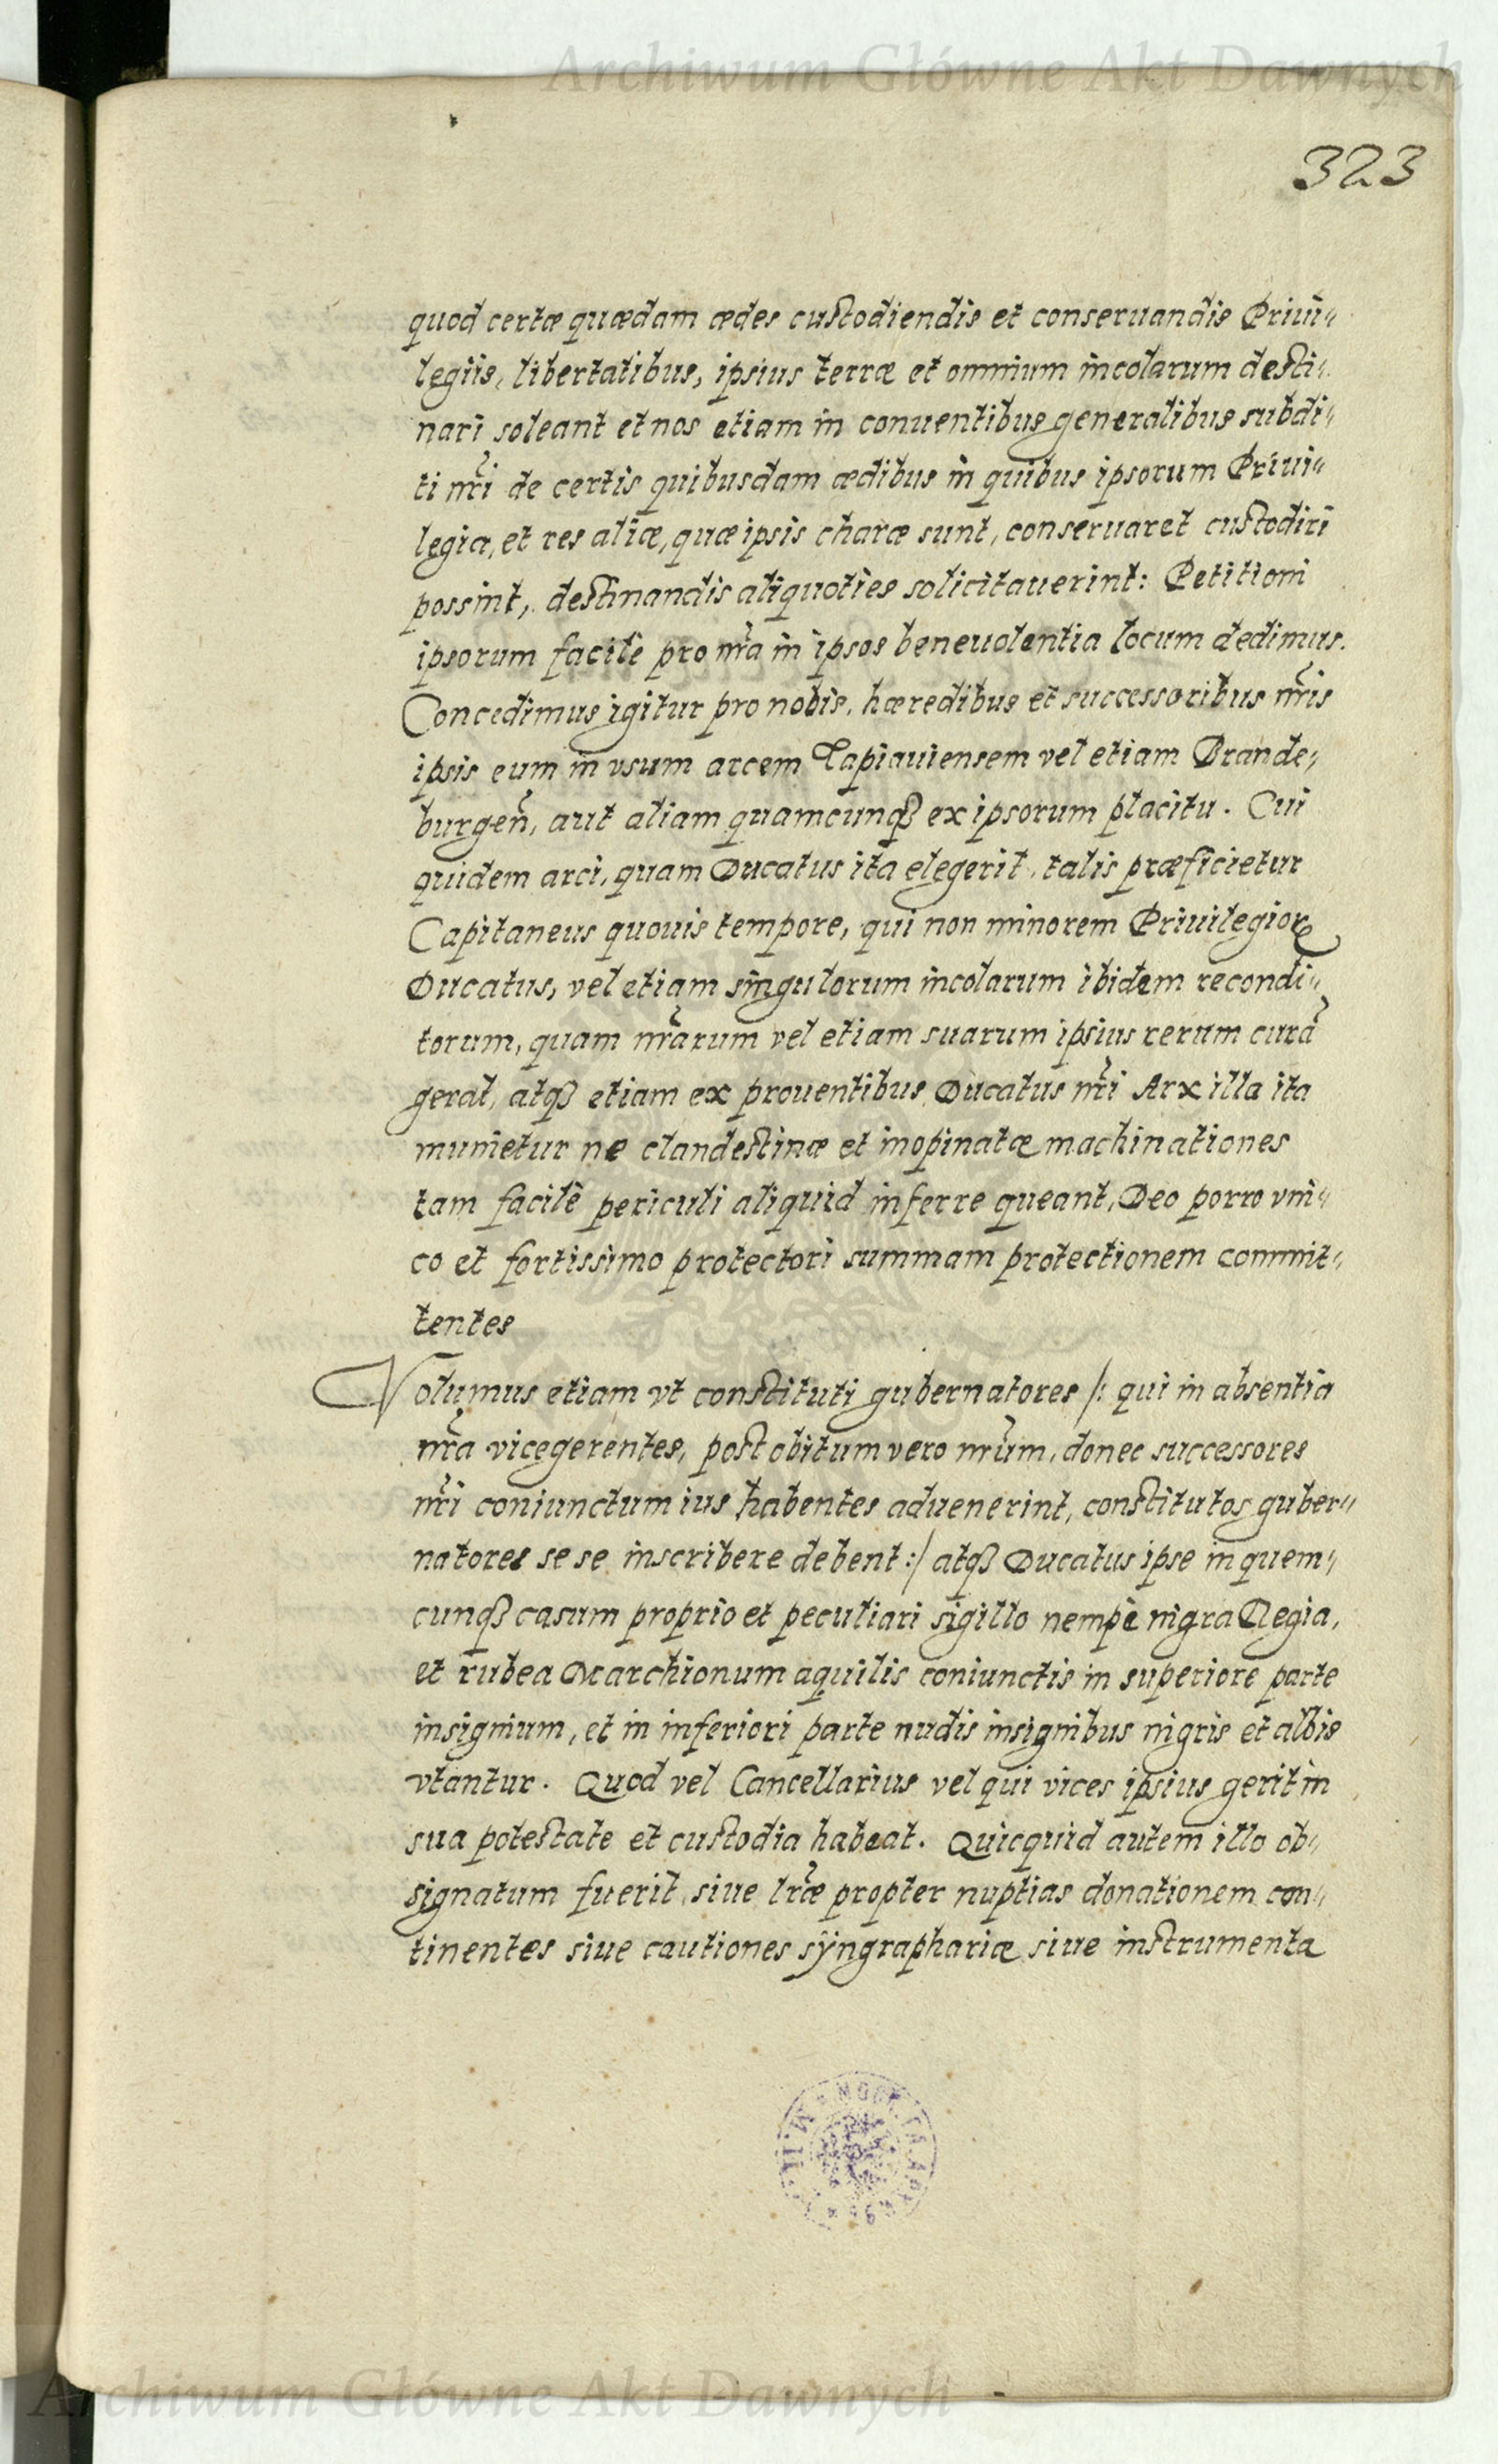 Archiwum Główne Akt Dawnych
323
quod certæ quædam ædes custodiendis et conseruandis Priui„
legiis, libertatibus, ipsius terræ et omnium incolarum desti„
nari soleant et nos etiam in conuentibus generalibus subdi„
ti nr̃i de certis quibusdam ædibus in quibus ipsorum Priui„
legia, et res aliæ, quæ ipsis charæ sunt, conseruaret custodiri
possint, destinandis aliquoties solicitauerint: Petitioni
ipsorum facilè pro nr̃a in ipsos beneuolentia locum dedimus.
Concedimus igitur pro nobis, hæredibus et successoribus nr̃is
ipsis eum in vsum arcem Tapiauiensem vel etiam Brande„
burgen̄, aut aliam quamcunqȝ ex ipsorum placitu. Cui
quidem arci, quam Ducatus ita elegerit, talis præficietur
Capitaneus quouis tempore, qui non minorem Priuilegioꝝ
Ducatus, vel etiam singulorum incolarum ibidem recondi„
torum, quam nr̃arum vel etiam suarum ipsius rerum curã
gerat, atqȝ etiam ex prouentibus Ducatus nr̃i Arx illa ita
munietur ne clandestinæ et inopinatæ machinationes
tam facilè periculi aliquid inferre queant, Deo porro vni„
co et fortissimo protectori summam protectionem commit„
tentes
Volumus etiam vt constituti gubernatores /: qui in absentia
nr̃a vicegerentes, post obitum vero nr̃um, donec successores
nr̃i coniunctum ius habentes aduenerint, constitutos guber„
natores se se inscribere debent :/ atqȝ Ducatus ipse in quem„
cunqȝ casum proprio et peculiari sigillo nempè nigra Regia,
et rubea Marchionum aquilis coniunctis in superiore parte
insignium, et in inferiori parte nudis insignibus nigris et albis
vtantur. Quod vel Cancellarius vel qui vices ipsius gerit in
sua potestate et custodia habeat. Quicquid autem illo ob„
signatum fuerit, siue lr̃æ propter nuptias donationem con„
tinentes siue cautiones sÿngraphariæ siue instrumenta
Archiwum Główne Akt Dawnych